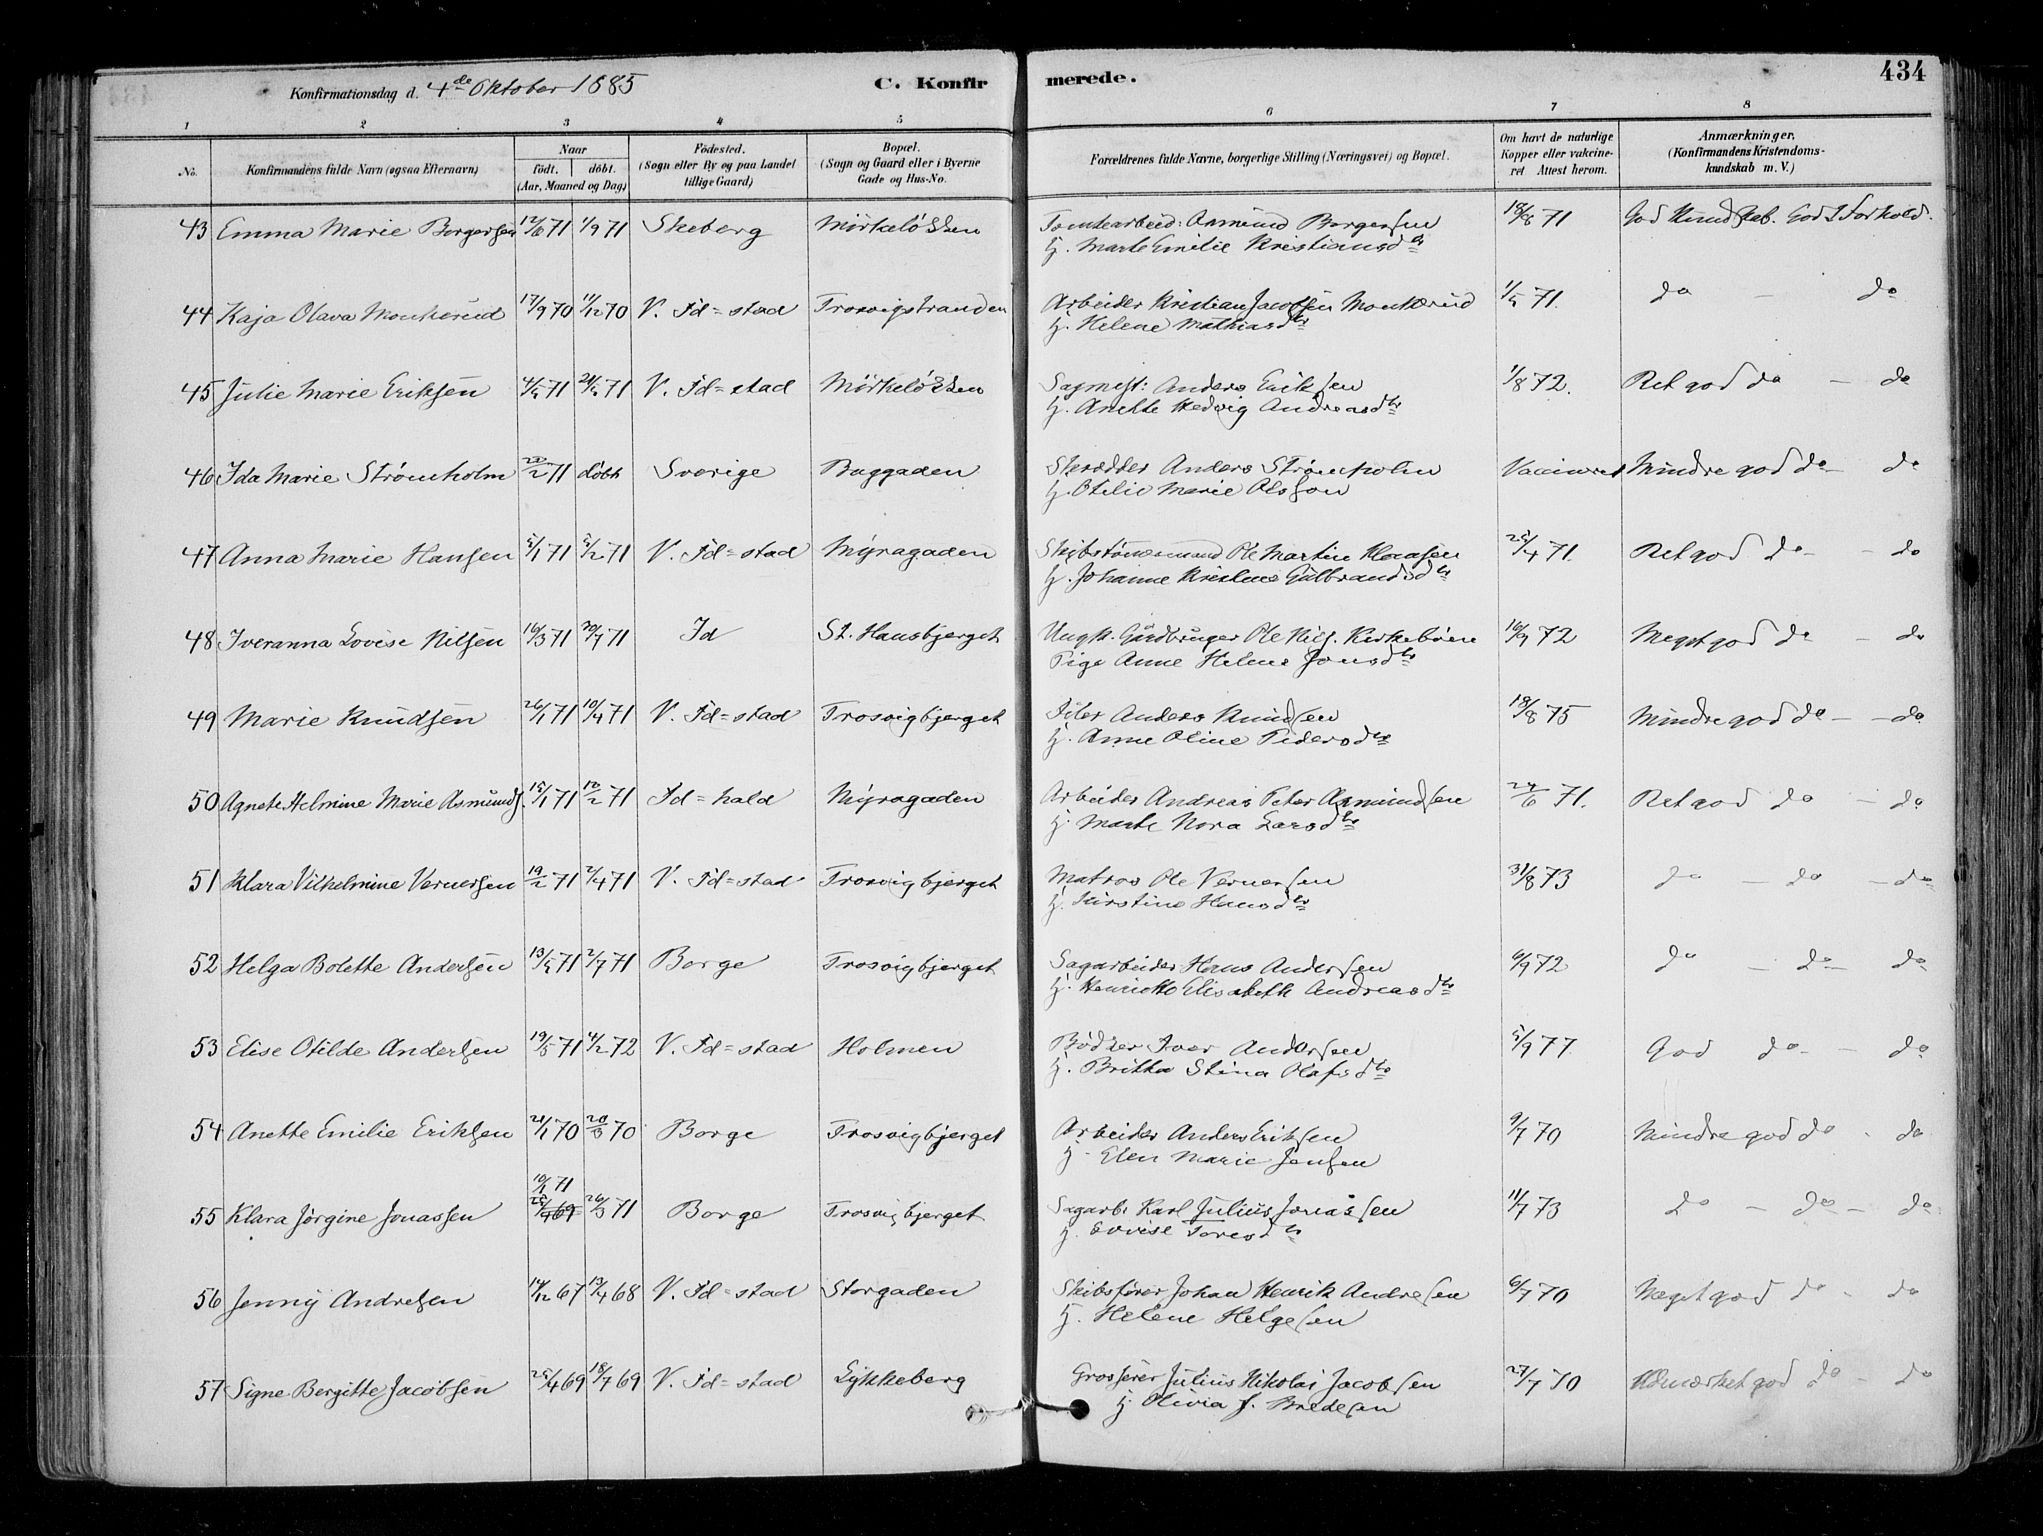 Konfirmationsdag d. 4de Oktober 1885
C. Konfirmerede.
434
1 2 3 4 5 6 7 8
No. Konfirmandens fulde Navn (ogsaa Efternavn) Naar født. døbt. (Aar, Maaned og Dag) Fødested. (Sogn eller By og paa Landet tillige Gaard) Bopæl. (Sogn og Gaard eller i Byerne Gade og Hus-No. Forældrenes fulde Navne, borgerlige Stilling (Næringsvei) og Bopæl. Om havt de naturlige Kopper eller vakcineret Attest herom. Anmærkninger, (Konfirmandens Kristendomskundskab m. V.)
43 Emma Marie Borgersen 12/6 71 1/9 71 Skeberg Mörkelökken Tomtearbeid: Asmund Borgersen 18/8 71 God Kundskab. Godt Forhold.
H. Marte Emilie Kristiansdtr
44 Kaja Olava Monkerud 17/9 70 11/12 70 V. Fd=stad Trosvigstranden Arbeider Kristian Jacobsen Monkerud 1/5 71. do - do
H. Helene Mathiasdtr
45 Julie Marie Eriksen 4/5 71 21/5 71 V. Fd=stad Mörkelökken Sagmest: Anders Eriksen 1/8 72. Ret god do - do
H. Anette Hedvig Andreasdtr
46 Ida Marie Strømholm 22/2 71 døbt Sverige Baggaden Skrædder Anders Strømholm Vaccineret Mindre god do - do
H. Otilie Marie Olsson
47 Anna Marie Hansen 5/1 71 5/2 71 V. Fd=stad Myragaden Skibstømmermand Ole Martin Hansen 25/4 71. Ret god do - do
H. Johanne Kristine Gulbrandsdtr
48 Iveranna Lovise Nilsen 16/3 71 20/7 71 Id St. Hansbjerget Ungk. Gårdbruger Ole Nils. Kirkebøen 16/7 72 Meget god do - do
Pige Anne Helene Jonsdtr
49 Marie Knudsen 26/1 71 10/4 71 V. Fd=stad Trosvigbjerget Filer Anders Knudsen 18/8 75 Mindre god do - do
H. Anne Oline Pedersdtr
50 Agnete Helmine Marie Asmunds. 15/1 71 12/2 71 Fd=hald Myragaden Arbeider Andreas Peter Asmundsen 24/6 71. Ret god do - do
H. Marte Nora Larsdtr
51 Klara Vilhelmine Vernersen 19/2 71 2/4 71 V. Fd=stad Trosvigbjerget Matros Ole Vernersen 31/8 73 do - do - do
H. Kirstine Hansdtr
52 Helga Bolette Andersen 13/5 71 2/7 71 Borge Trosvigbjerget Sagarbeider Hans Andersen 6/9 72 do - do - do
H. Henriette Elisabeth Andreasdtr
53 Elise Otilde Andersen 19/5 71 4/2 72 V. Fd=stad Holmen Bødker Iver Andersen 5/9 77. God do - do
H. Britha Stina Olafsdtr
54 Anette Emilie Eriksen 21/1 70 20/3 70 Borge Trosvigbjerget Arbeider Anders Eriksen 9/7 70 Mindre god do - do
H. Elen Marie Jensen
10/1 71
55 Klara Jørgine Jonassen 25/4 69 26/3 71 Borge Trosvigbjerget Sagarb. Karl Julius Jonassen 11/7 73 do - do - do
H. Lovise Toresdtr
56 Jenny Andresen 14/12 67 13/4 68 V. Fd=stad Storgaden Skibsfører Johan Henrik Andresen 6/7 70 Meget god do - do
H. Helene Helgesen
57 Signe Bergitte Jacobsen 25/4 69 18/7 69 V. Fd=stad Lykkeberg Grosserer Julius Nikolai Jacobsen 27/7 70 Udmærket god do - do
H. Olivia J. Bredesen